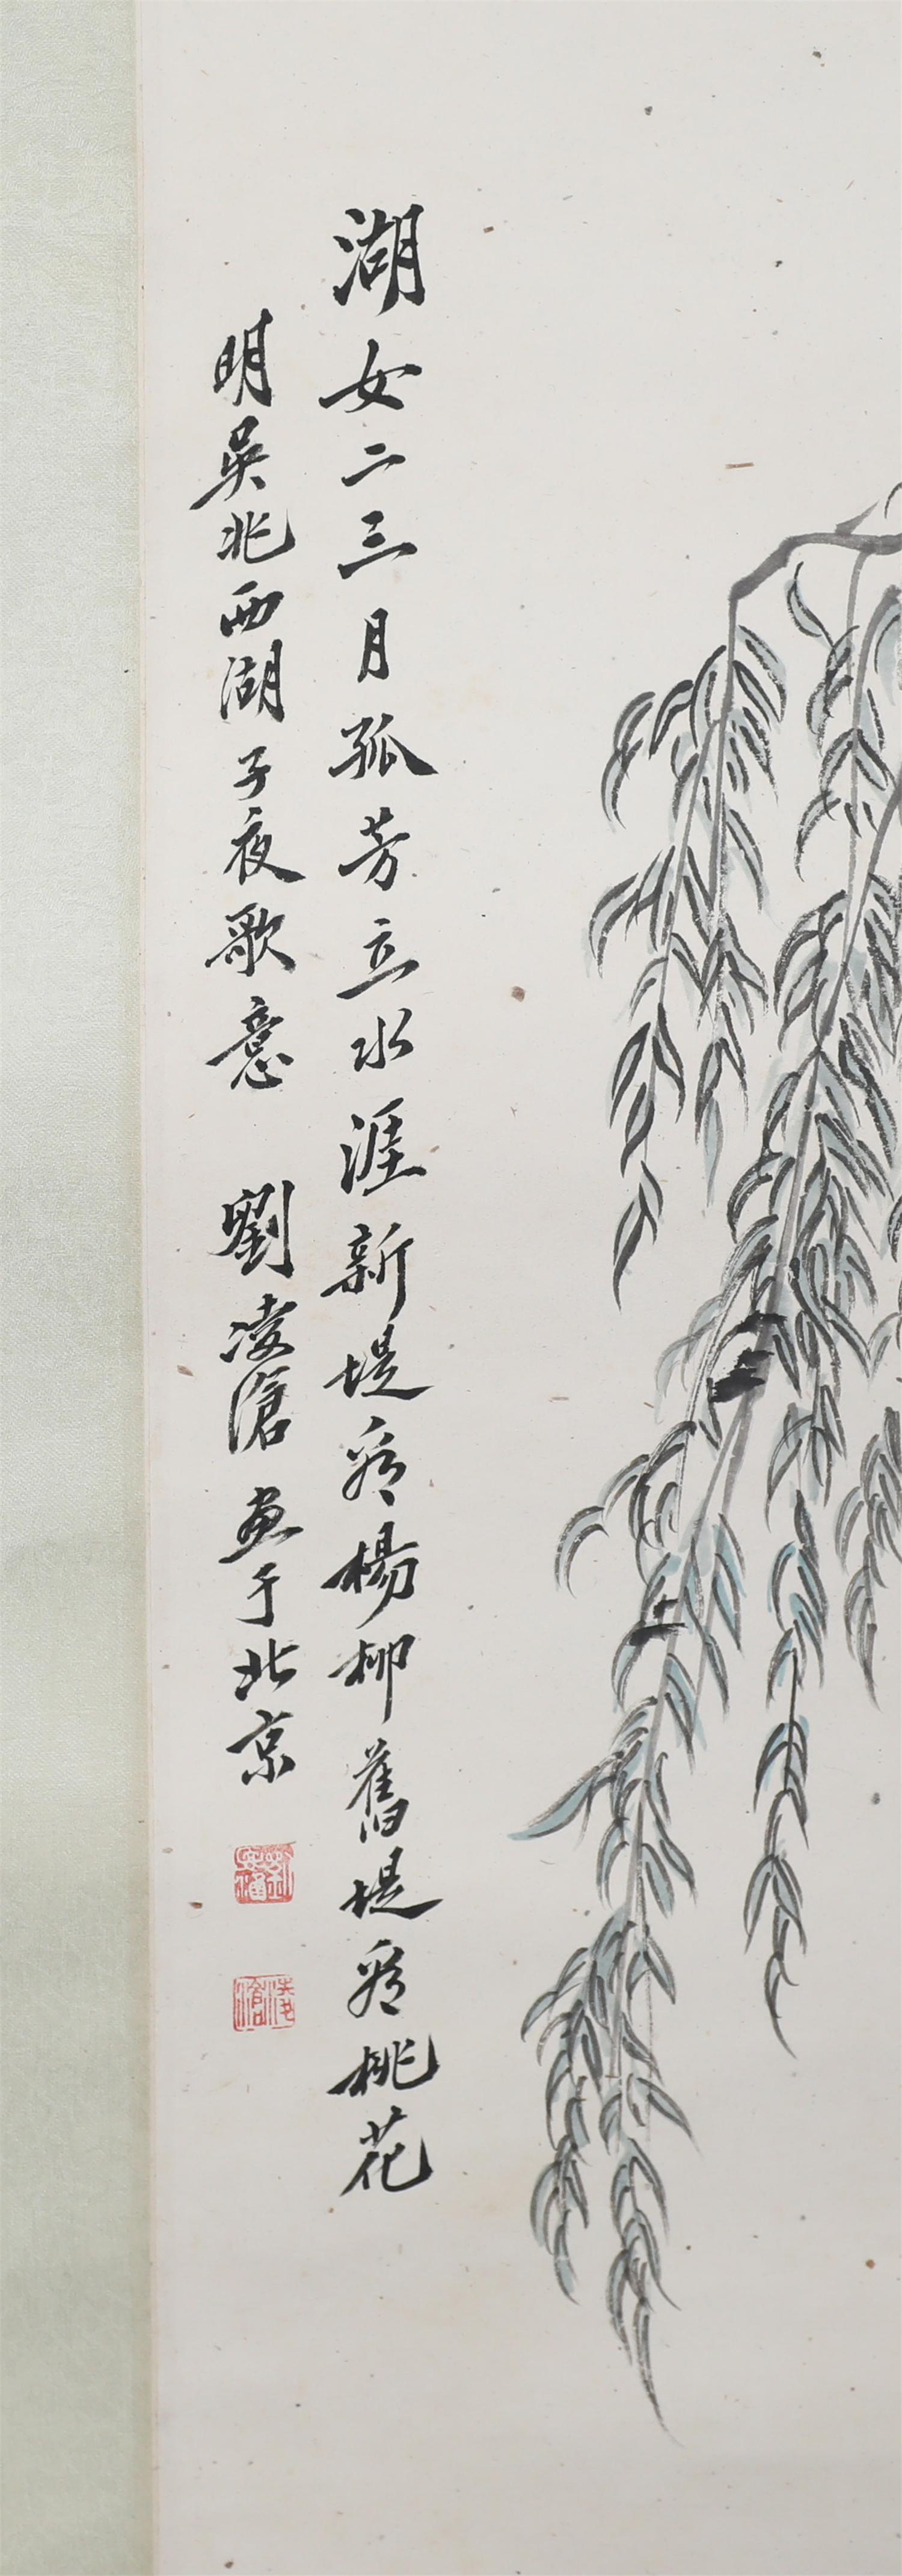 湖女二三月孤芳立水涯新堤看楊柳舊堤看桃花
明吳兆西湖子夜歌意 劉凌滄畫于北京
凌滄